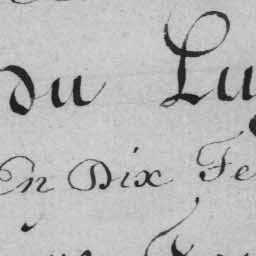 du Lu
En Dix Fe